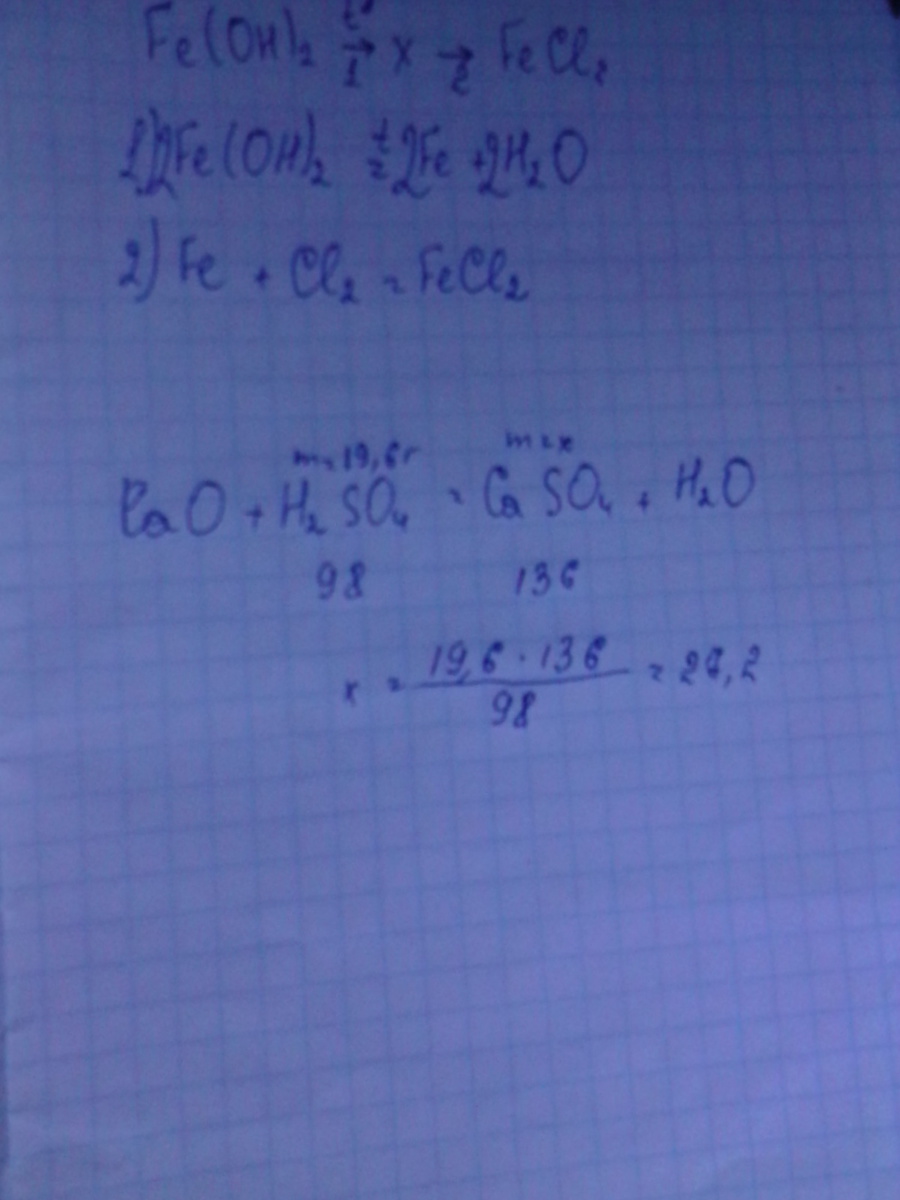 Fe(OH)₂ →(t°, 1) x →(2) FeCl₂
1) 2Fe(OH)₂ =(t) 2Fe + 2H₂O
2) Fe + Cl₂ = FeCl₂
m=19,6г m=x
CaO + H₂SO₄ = CaSO₄ + H₂O
98 136
x = 19,6 · 136 / 98 = 26,2